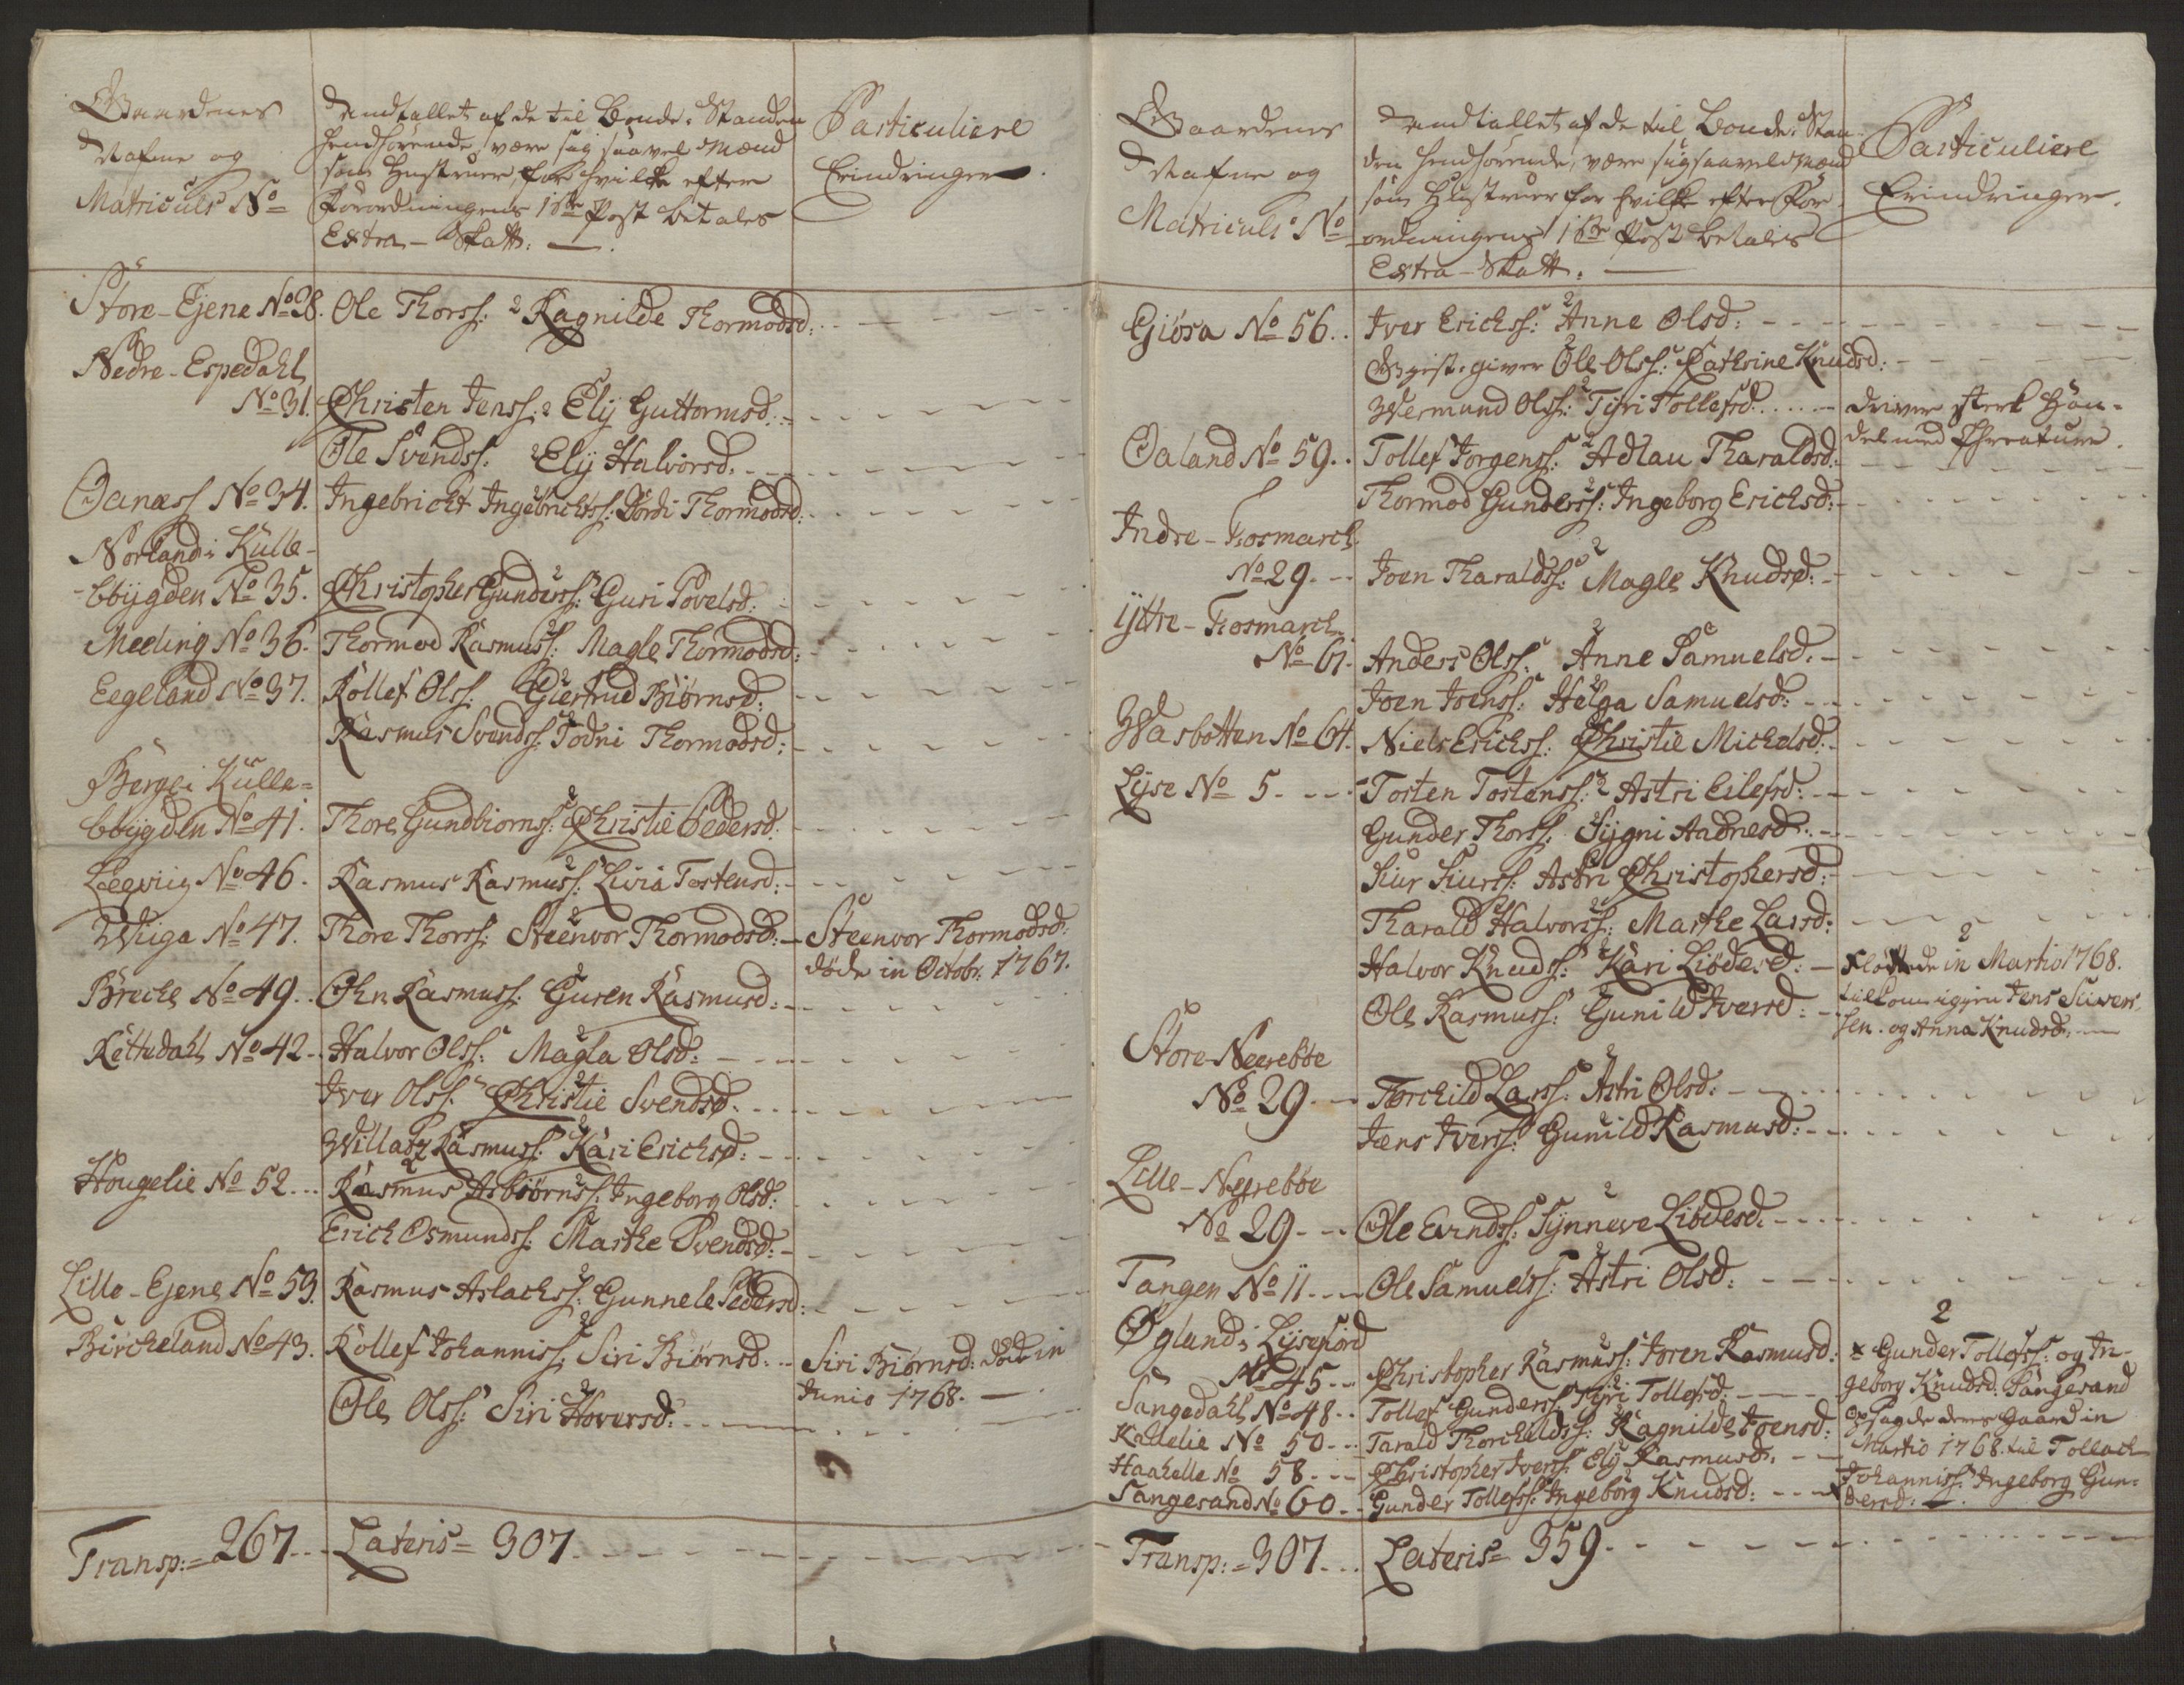 Gaardenes
Nafne og
Matriculs No
Andtallet af de til Bonde-Standen
henhørende, være sig saavel Mænd
som Hustruer, for hvilke efter
Forordningens 1ste Post betales
Extra-Skatt.
Particuliere
Erindringer.
Store-Ejene No 28. Ole Thorss: 2 Ragnilde Thormodsd:
Nedre-Espedahl
No 31. Christen Jenss: 2 Elij Guttormsd:
Ole Svendss: 2 Elij Halvorsd.
Oanæss No 34. Ingebricht Ingebrichtss: 2 Dordi Thormodsd:
Norland i Kulle-
bbijgden No 35. Christopher Gunderss: 2 Guri Povelsd:
Meeling No 36. Thormod Rasmuss: 2 Magle Thormodsd:
Eegeland No 37. Rollef Olss: 2 Giertrud Biørnsd:
Rasmus Svendss: 2 Jodni Thormodsd:
Berge i Kulle-
bbijgden No 41. Thore Gundbiornss: 2 Christie Pedersd:
Leegviig No 46. Rasmus Rasmuss: 2 Livia Tostensd:
Wiiga No 47. Thore Thorss: 2 Steenvor Thormodsd: Steenvor Thormodsd:
døde in Octobr. 1767.
Breche No 49. Ohn Rasmuss: 2 Guren Rasmusd:
Rettedahl No 42. Halvor Olss: 2 Magla Olsd:
Iver Olss: 2 Christie Svendsd:
Willatz Rasmuss: 2 Kari Erichsd:
Hougelie No 52. Rasmus Asbiørnss: 2 Ingeborg Olsd:
Erich Osmundss: 2 Marthe Svendsd:
Lille-Ejene No 53. Rasmus Aslachss: 2 Gunnele Pedersd:
Bircheland No 43. Rollef Johanniss: 2 Siri Biørnsd: Siri Biørnsd: døde in
Junio 1768.
Ole Olss: 2 Siri Hoversd:
Transp: = 267 Lateris = 307
Gaardenes
Nafne og
Matriculs No
Andtallet af de til Bonde-Stan-
den henhørende, være sig saavel Mænd
som Hustruer for hvilke efter For-
ordningens 1ste Post betales
Extra-Skatt.
Particuliere
Erindringer.
Giøsa No 56. Iver Erichss: 2 Anne Olsd:
Giest-giver Ole Olss: 2 Cathrine Knudsd:
Wermund Olss: 2 Tyri Tollefsd: driver sterk Han-
del med Chreature.
Oaland No 59. Tollef Jorgenss: 2 Adlau Tharaldsd:
Thormod Gunderss: 2 Ingeborg Erichsd:
Indre-Fosmarch
No 29. Joen Tharaldss: 2 Magle Knudsd:
ijttre-Fosmarch
No 61. Anders Olss: 2 Anne Samuelsd:
Joen Joenss: 2 Helga Samuelsd:
Wasbotten No 64. Niels Erichss: 2 Christie Michelsd:
Lijse No 5. Tosten Tostenss: 2 Astri Eilefsd:
Gunder Thorss: 2 Sijgni Aadnesd:
Siur Siurss: 2 Astri Christophersd:
Tharald Halvorss: 2 Marthe Larsd:
Halvor Knudss: 2 Kari Liødesd: fløttede in Martio 1768. 2
Ole Rasmuss: 2 Gunild Iversd: tilkom igien Jens Siver-
sen og Anna Knudsd:
Store-Neerebøe
No 29. Torchild Larss: 2 Astri Olsd:
Jens Iverss: 2 Gunild Rasmusd:
Lille-Neerebøe
No 29. Ole Evindss: 2 Sijnneve Liødesd:
Tangen No 11. Ole Samuelss: 2 Astri Olsd:
Øgland i Lijsefiord
No 45. Christopher Rasmuss: 2 Joren Rasmusd: 2 x Gunder Tollefss: og In-
Sangedahl No 48. Tollef Gunderss: 2 Tyri Tollefsd: geborg Knudsd: Sangesand
Kallelie No 50. Tarald Thorchildss: 2 Ragnilde Joensd: opsagde deres gaard in
Haahelle No 58. Christopher Iverss: 2 Elij Rasmusd: Martio 1768 til Tollach
Sangesand No 60. Gunder Tollefss: 2 Ingeborg Knudsd: x Johanniss: Ingeborg Gun-
dersd:
Transp: = 307 Lateris = 359